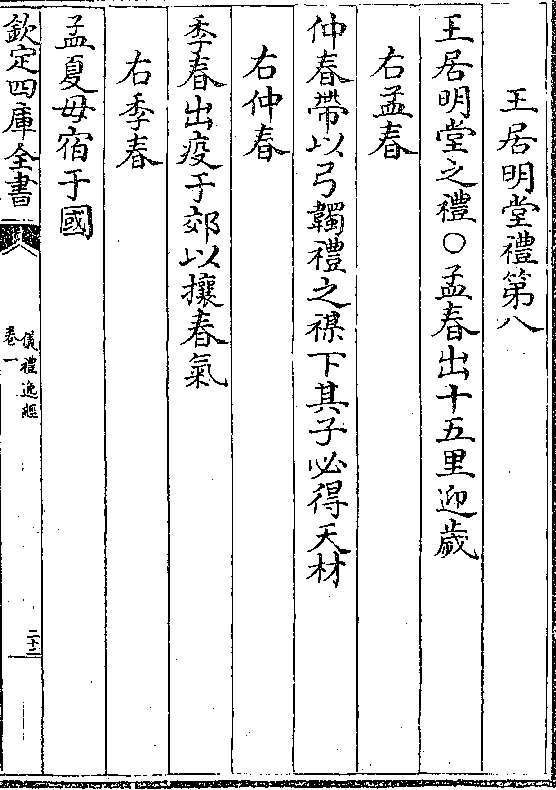 王居明堂禮第八
王居明堂之禮○孟春出十五里迎歲
右孟春
仲春帶以弓韣禮之禖下其子必得天材
右仲春
季春出疫于郊以攘春氣
右季春
孟夏毋宿于國
欽定四庫全書
儀禮逸經
卷一
二十二